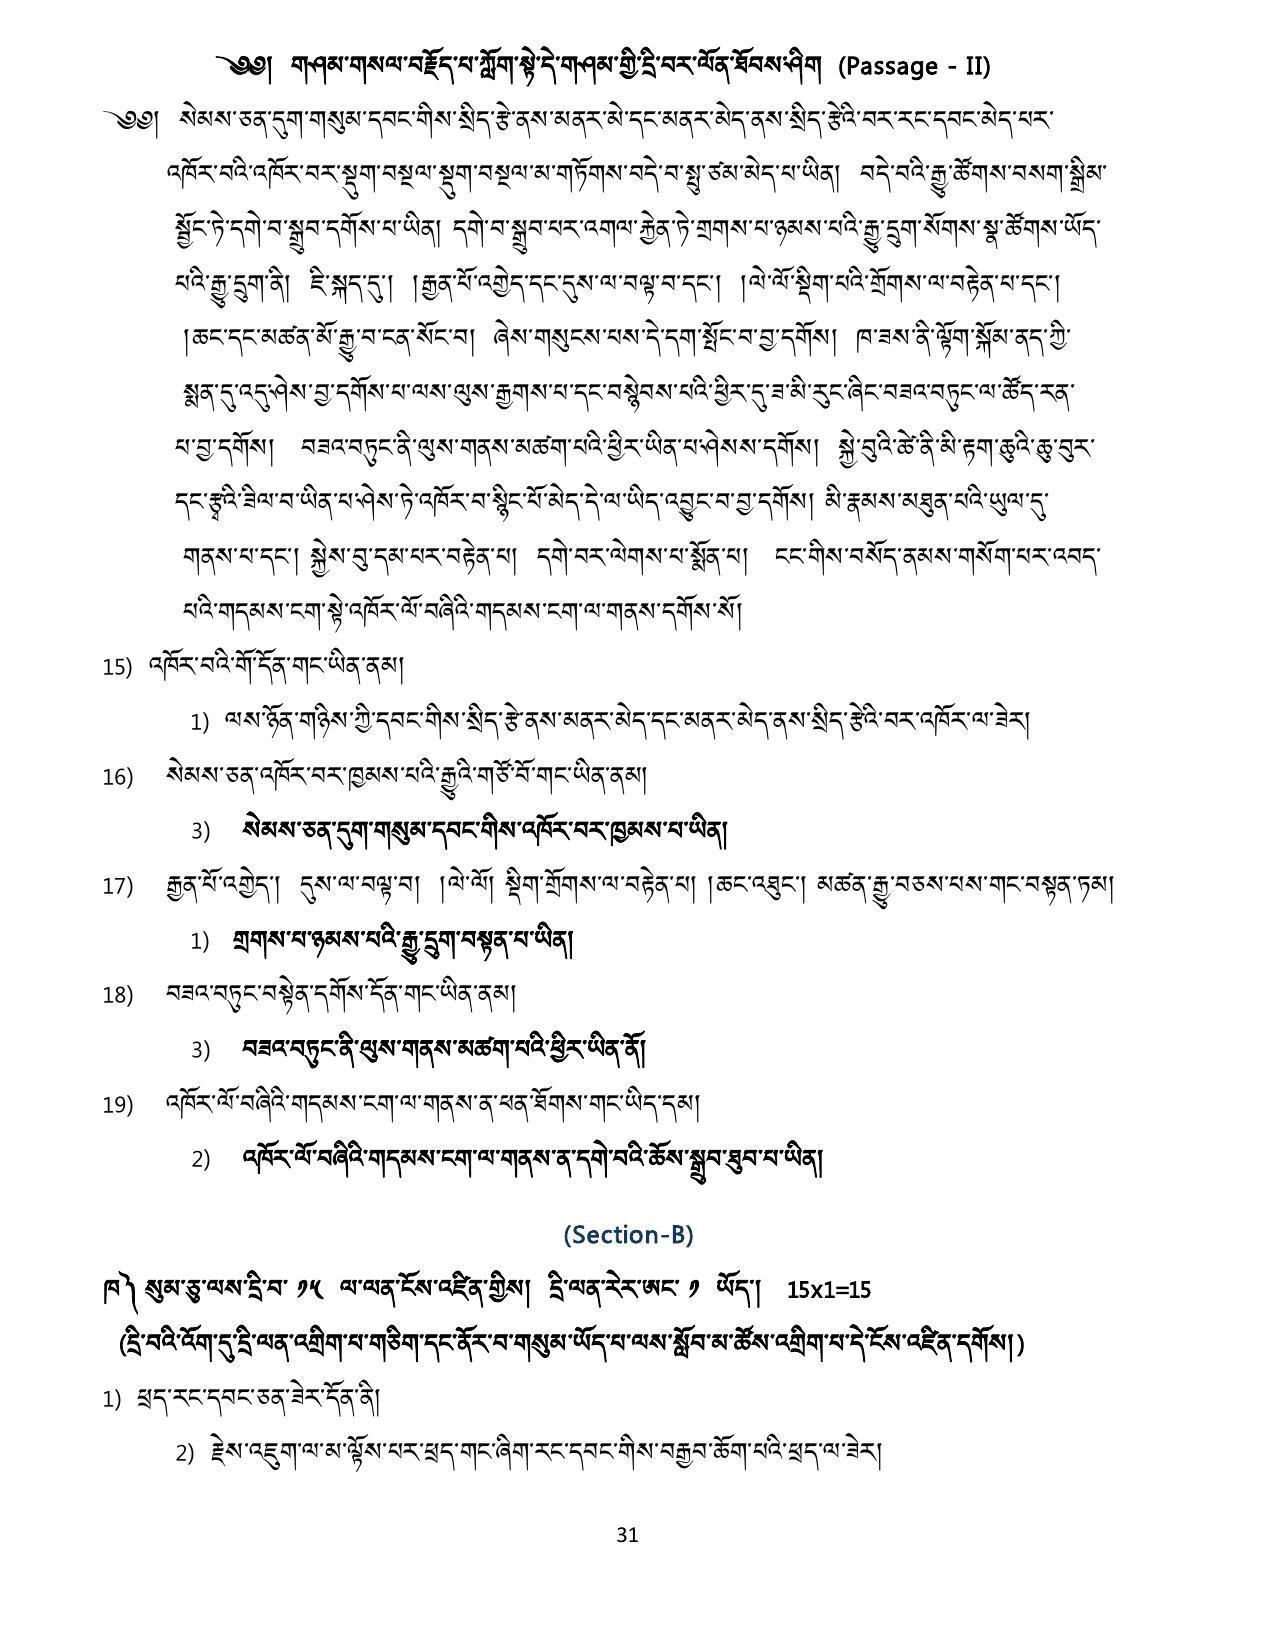 ༄༅། གཤམ་གསལ་བརྗོད་པ་ཀློག་སྟེ་དེ་གཤམ་གྱི་དྲི་བར་ལོན་ཐོབས་ཤིག (Passage - II)
༄༅། སེམས་ཅན་དུག་གསུམ་དབང་གིས་སྲིད་རྩེ་ནས་མནར་མེ་དང་མནར་མེད་ནས་སྲིད་རྩེའི་བར་རང་དབང་མེད་པར་
འཁོར་བའི་འཁོར་བར་སྡུག་བསྔལ་སྡུག་བསྔལ་མ་གཏོགས་བདེ་བ་སྤུ་ཙམ་མེད་པ་ཡིན། བདེ་བའི་རྒྱུ་ཚོགས་བསག་སྒྲིམ་
སྦྱོང་ཏེ་དགེ་བ་སྒྲུབ་དགོས་པ་ཡིན། དགེ་བ་སྒྲུབ་པར་འགལ་རྐྱེན་ཏེ་གྲགས་པ་ཉམས་པའི་རྒྱུ་དྲུག་སོགས་སྣ་ཚོགས་ཡོད་
པའི་རྒྱུ་དྲུག་ནི། ཇི་སྐད་དུ། །རྒྱན་པོ་འགྱེད་དང་དུས་ལ་བལྟ་བ་དང་། །ལེ་ལོ་སྡིག་པའི་གྲོགས་ལ་བརྟེན་པ་དང་།
།ཆང་དང་མཚན་མོ་རྒྱུ་བ་ངན་སོང་བ། ཞེས་གསུངས་པས་དེ་དག་སྤོང་བ་བྱ་དགོས། ཁ་ཟས་ནི་ལྟོག་སྐོམ་ནད་ཀྱི་
སྨན་དུ་འདུ་ཤེས་བྱ་དགོས་པ་ལས་ལུས་རྒྱགས་པ་དང་བསྙེབས་པའི་ཕྱིར་དུ་ཟ་མི་རུང་ཞིང་བཟའ་བཏུང་ལ་ཚོད་རན་
པ་བྱ་དགོས། བཟའ་བཏུང་ནི་ལུས་གནས་མཚག་པའི་ཕྱིར་ཡིན་པ་ཤེསས་དགོས། སྐྱེ་བུའི་ཚེ་ནི་མི་རྟག་ཆུའི་ཆུ་བུར་
དང་རྩྭའི་ཟིལ་བ་ཡིན་པ་ཤེས་ཏེ་འཁོར་བ་སྙིང་པོ་མེད་དེ་ལ་ཡིད་འབྱུང་བ་བྱ་དགོས། མི་རྣམས་མཐུན་པའི་ཡུལ་དུ་
གནས་པ་དང་། སྐྱེས་བུ་དམ་པར་བརྟེན་པ། དགེ་བར་ལེགས་པ་སྨོན་པ། ངང་གིས་བསོད་ནམས་གསོག་པར་འབད་
པའི་གདམས་ངག་སྟེ་འཁོར་ལོ་བཞིའི་གདམས་ངག་ལ་གནས་དགོས་སོ།
15) འཁོར་བའི་གོ་དོན་གང་ཡིན་ནམ།
1) ལས་ཉོན་གཉིས་ཀྱི་དབང་གིས་སྲིད་རྩེ་ནས་མནར་མེད་དང་མནར་མེད་ནས་སྲིད་རྩེའི་བར་འཁོར་ལ་ཟེར།
16) སེམས་ཅན་འཁོར་བར་ཁྱམས་པའི་རྒྱུའི་གཙོ་བོ་གང་ཡིན་ནམ།
3) སེམས་ཅན་དུག་གསུམ་དབང་གིས་འཁོར་བར་ཁྱམས་པ་ཡིན།
17) རྒྱན་པོ་འགྱེད་། དུས་ལ་བལྟ་བ། །ལེ་ལོ། སྡིག་གྲོགས་ལ་བརྟེན་པ། །ཆང་འཐུང་། མཚན་རྒྱུ་བཅས་པས་གང་བསྟན་ཏམ།
1) གྲགས་པ་ཉམས་པའི་རྒྱུ་དྲུག་བསྟན་པ་ཡིན།
18) བཟའ་བཏུང་བསྟེན་དགོས་དོན་གང་ཡིན་ནམ།
3) བཟའ་བཏུང་ནི་ལུས་གནས་མཚག་པའི་ཕྱིར་ཡིན་ནོ།
19) འཁོར་ལོ་བཞིའི་གདམས་ངག་ལ་གནས་ན་ཕན་ཐོགས་གང་ཡིད་དམ།
2) འཁོར་ལོ་བཞིའི་གདམས་ངག་ལ་གནས་ན་དགེ་བའི་ཆོས་སྒྲུབ་ཐུབ་པ་ཡིན།
(Section-B)
ཁ༽ སུམ་ཅུ་ལས་དྲི་བ་ ༡༥ ལ་ལན་ངོས་འཛིན་གྱིས། དྲི་ལན་རེར་ཨང་ ༡ ཡོད་། 15x1=15
(དྲི་བའི་འོག་ཏུ་དྲི་ལན་འགྲིག་པ་གཅིག་དང་ནོར་བ་གསུམ་ཡོད་པ་ལས་སློབ་མ་ཚོས་འགྲིག་པ་དེ་ངོས་འཛིན་དགོས།)
1) ཕྲད་རང་དབང་ཅན་ཟེར་དོན་ནི།
2) རྗེས་འཇུག་ལ་མ་ལྟོས་པར་ཕྲད་གང་ཞིག་རང་དབང་གིས་བརྒྱབ་ཆོག་པའི་ཕྲད་ལ་ཟེར།
31